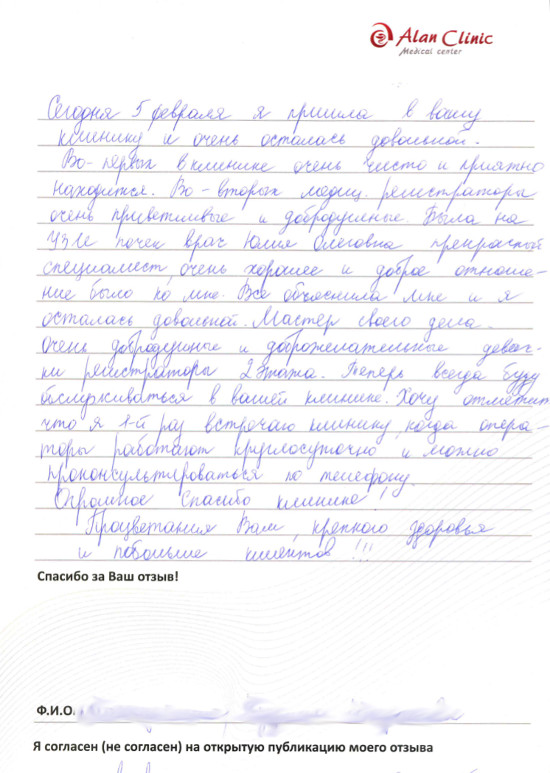 Alan Clinic
Medical center
Сегодня 5 февраля я пришла в вашу
клинику и очень осталась довольной.
Во-первых в клинике очень чисто и приятно
находится. Во-вторых медиц. регистраторы
очень приветливые и добродушные. Была на
УЗИ почек врач Юлия Олеговна прекрасный
специалист, очень хорошее и доброе отноше-
ние было ко мне. Все объяснила мне и я
осталась довольной. Мастер своего дела.
Очень добродушные и доброжелательные девоч-
ки регистраторы 2 этажа. Теперь всегда буду
обслуживаться в вашей клинике. Хочу отметить
что я 1-й раз встречаю клинику, когда опера-
торы работают круглосуточно и можно
проконсультироваться по телефону.
Огромное Спасибо клинике!
Процветания Вам, крепкого здоровья
и побольше клиентов!!!
Спасибо за Ваш отзыв!
Ф.И.О.
Я согласен (не согласен) на открытую публикацию моего отзыва